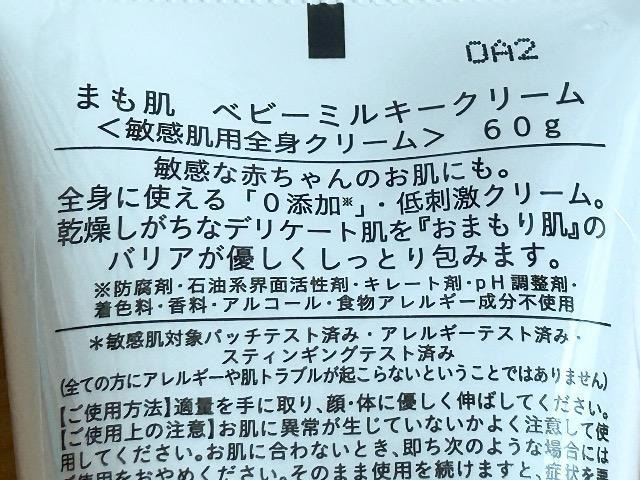 0A2
まも肌　ベビーミルキークリーム
＜敏感肌用全身クリーム＞　６０ｇ
敏感な赤ちゃんのお肌にも。
全身に使える「０添加※」・低刺激クリーム。
乾燥しがちなデリケート肌を『おまもり肌』の
バリアが優しくしっとり包みます。
※防腐剤・石油系界面活性剤・キレート剤・pH調整剤・
着色料・香料・アルコール・食物アレルギー成分不使用
＊敏感肌対象パッチテスト済み・アレルギーテスト済み・
スティンギングテスト済み
(全ての方にアレルギーや肌トラブルが起こらないということではありません)
【ご使用方法】適量を手に取り、顔・体に優しく伸ばしてください。
【ご使用上の注意】お肌に異常が生じていないかよく注意して使
用してください。お肌に合わないとき、即ち次のような場合には
ご使用をおやめください。そのまま使用を続けますと、症状を悪